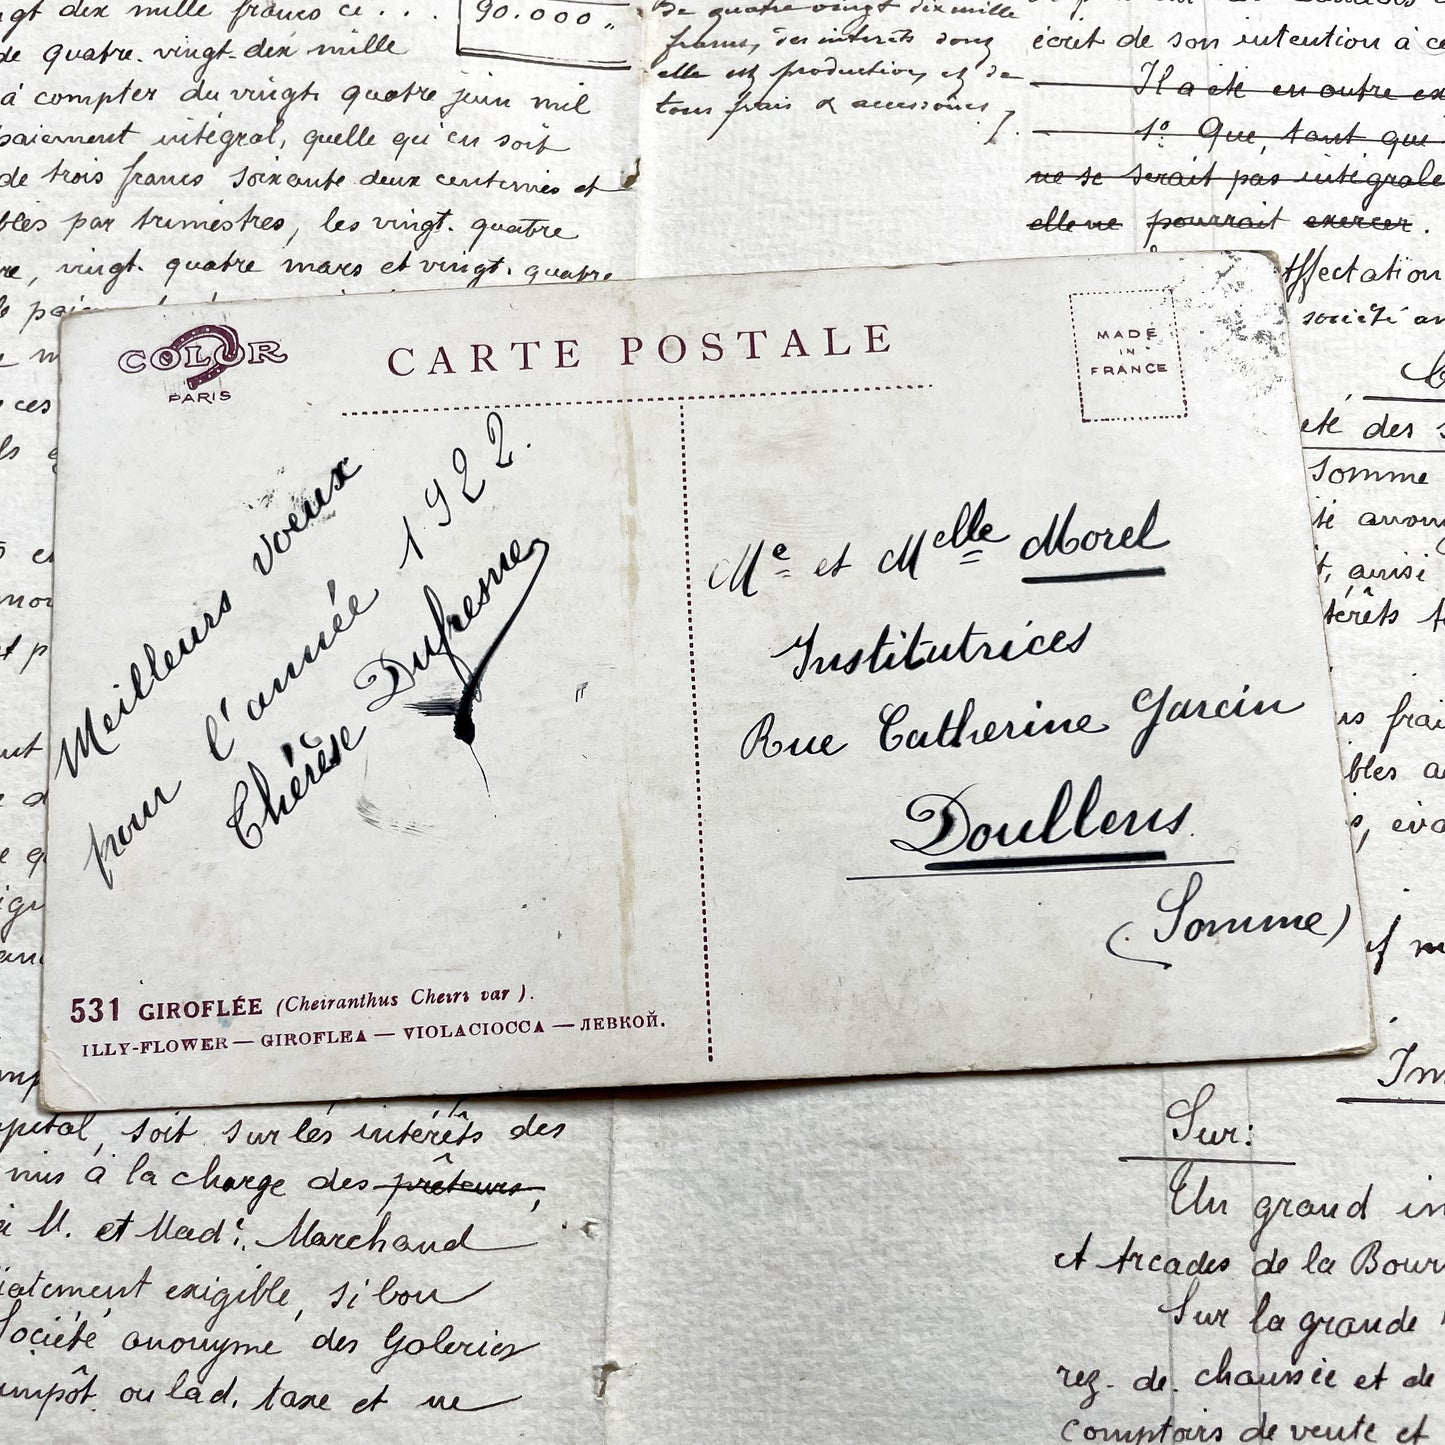 gt dix mille francs ci . . .
90.000 "
de quatre. vingt-dix mille
à compter du vingt quatre juin mil
paiement intégral, quelle qu'en soit
de trois francs soixante deux centimes et
bles par trimestres, les vingt. quatre
re, vingt. quatre mars et vingt. quatre
De quatre vingt dix mille
francs, des intérêts dont
elle est productive, et de
tous frais & accessoires
écret de son intention à ce
Il a été en outre ex
1º. Que, tant qui
ne se serait pas intégrale
elle ne pourrait exercer.
ffectation
société an
été des s
Somme
té anony
t, ainsi
térêts t
us frais
bles a
COLOR
PARIS
CARTE POSTALE
MADE
IN
FRANCE
Meilleurs voeux
pour l'année 1922.
Thérèse Dufresne
Me et Melle Morel
Institutrices
Rue Catherine Garcin
Doullens
(Somme)
531 GIROFLÉE (Cheiranthus Cheiri var ).
ILLY-FLOWER — GIROFLEA — VIOLACIOCCA — ЛЕВКОЙ.
pital, soit sur les intérêts des
mis à la charge des prêteurs,
à M. et Made. Marchand
iatement exigible, si bon
Société anonyme des Galeries
impôt. ou lad. taxe et ne
Im
Sur:
Un grand im
et Arcades de la Bour
Sur la grande
rez. de. chaussée et de
comptoirs de vente et